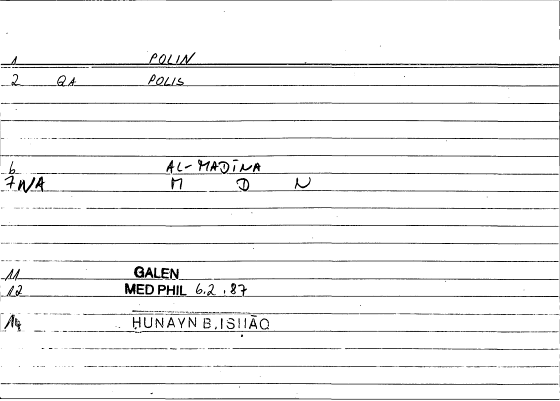 1 POLIN
2 QA POLIS
6 AL-MADĪNA
7 WA M D N
11 GALEN
12 MED PHIL 6.2.87
14 HUNAYN B. ISḤĀQ